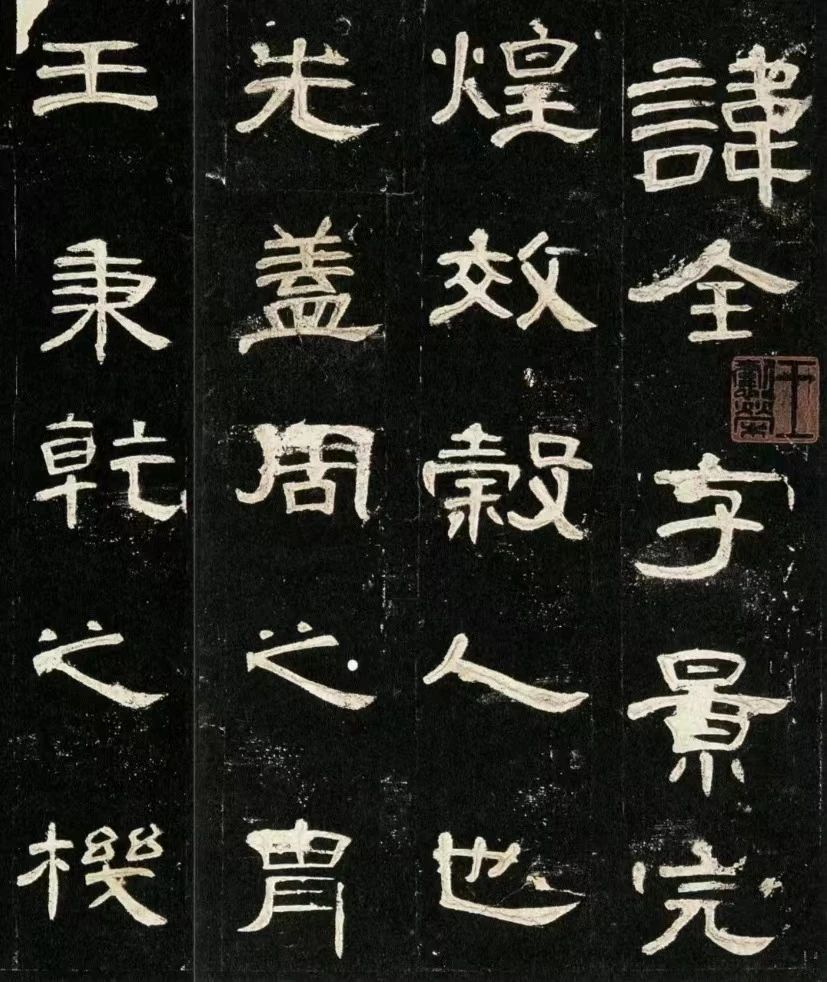 諱全字景完
煌效穀人也
先蓋周之胄
王秉乾之機